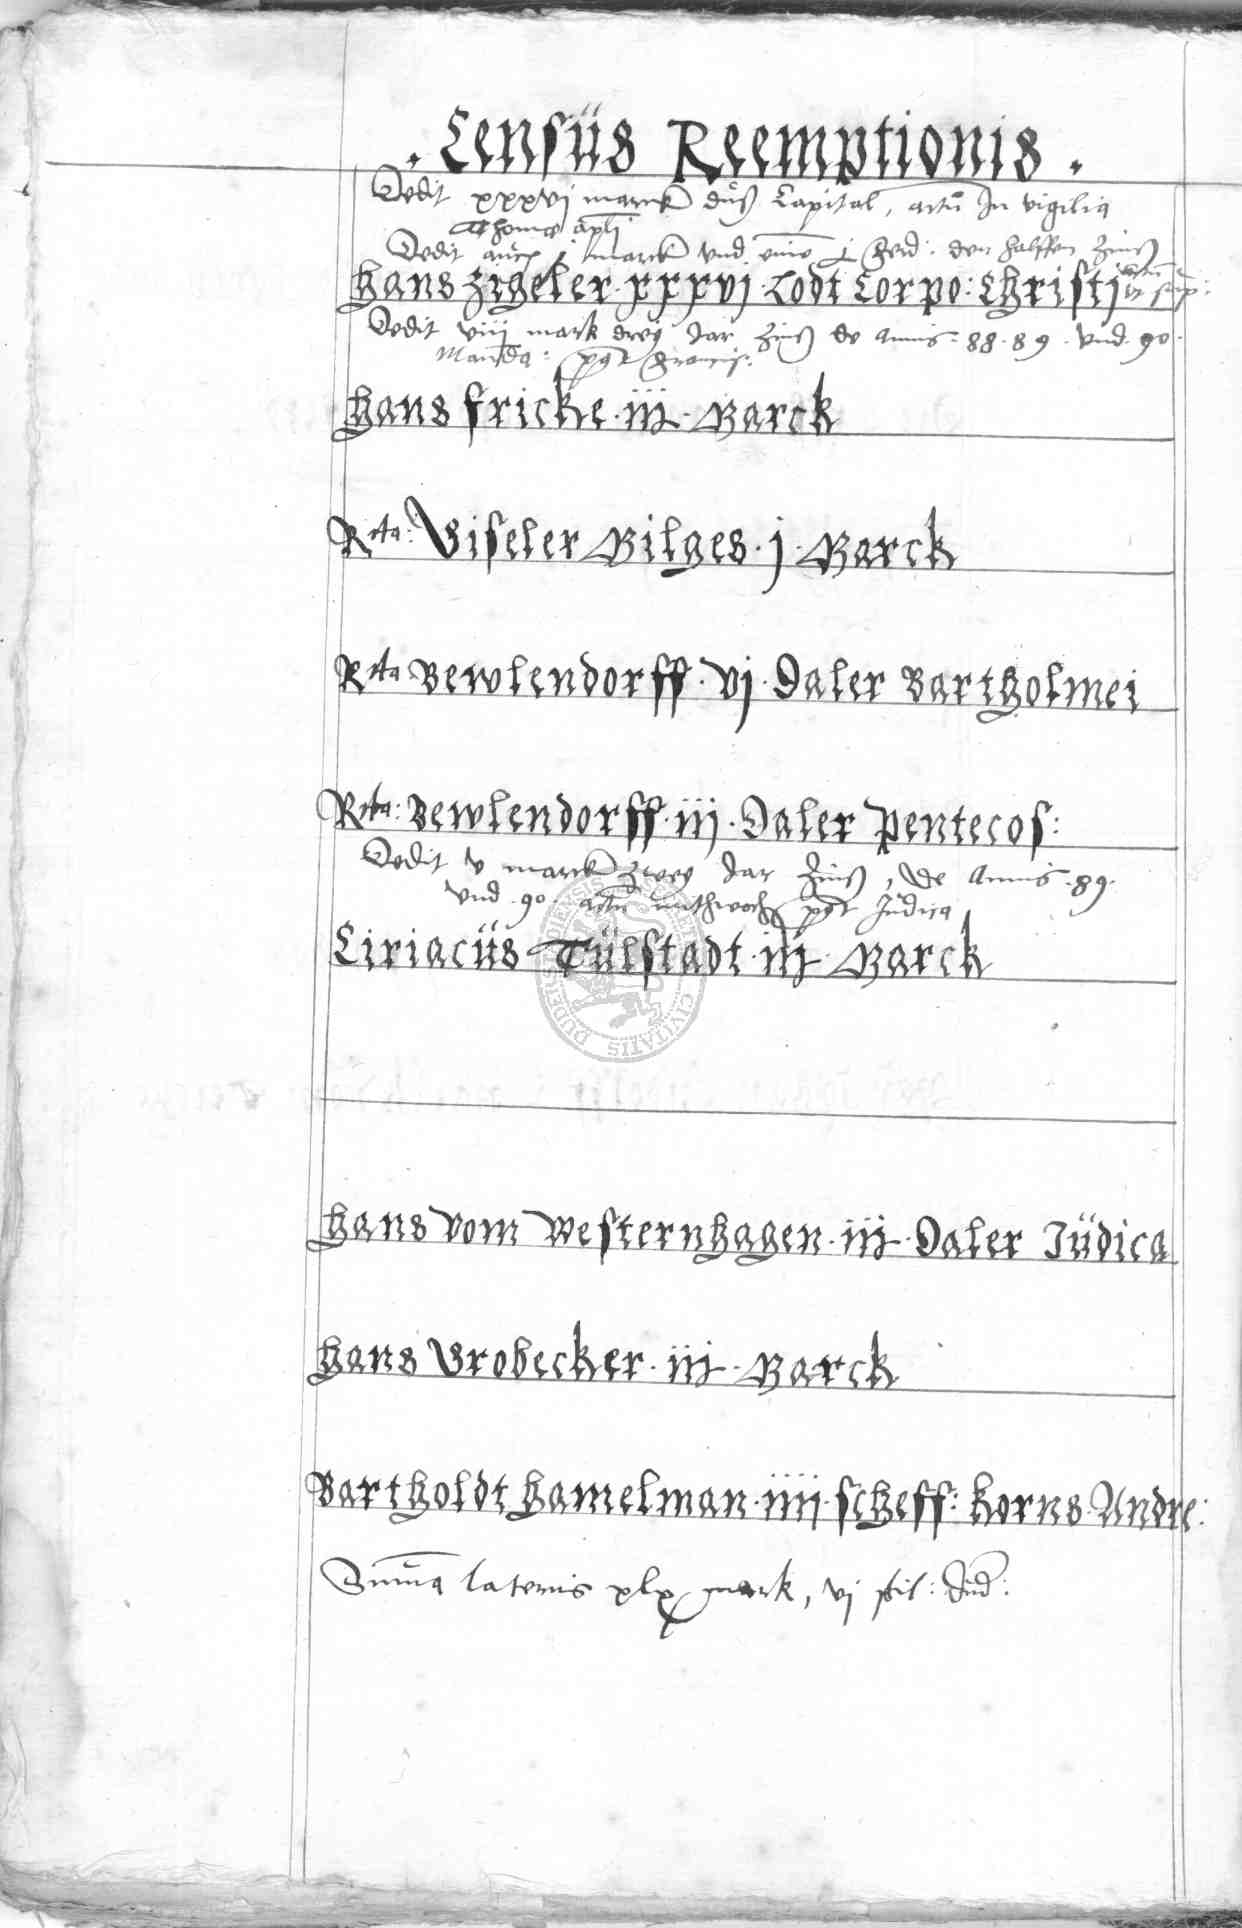 . Censüs Reemptionis .
Dedit xxxvj marck düß Capital, actū In vigilia
Thome apli
Dedit auch j marck vnd j ferd: den halffen Zinß
Hans Zigeler · xxxvj · Lodt Corpo: Christi
Dedit viiij mark drey Jar Zinß de Annis · 88 · 89 · vnd · 90 ·
Manda: post Francis:
Hans fricke · iij · Marck
Rta: Giseler Gilges · j · Marck
Rta Bewlendorff · vj · Daler Bartholmei
Rta: Bewlendorff · iij · Daler Pentecos:
Dedit v marck Zwey Jar Zinß, De Annis · 89 ·
Vnd · 90 · actū mithwochs post Judica
Ciriacüs Tülstadt · iij · Marck
DUDERSTADIENSIS CIVITATIS
Hans vom Westernhagen · iij · Daler Jüdica
Hans Grobecker · iij · Marck
Bartholdt Hamelman · iiij · scheff: korns Andre:
Summa lateris xlx mark, vj sol: Jud: